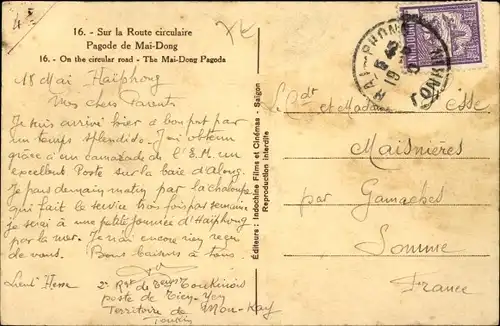 4 5
16. - Sur la Route circulaire
Pagode de Mai-Dong
16. - On the circular road - The Mai-Dong Pagoda
18 Mai Haïphong
Mes chers Parents
Je suis arrivé hier à bon port par
un temps splendide. J'ai obtenu
grâce à un camarade de l'E.M. un
excellent Poste sur la baie d'Along.
Je pars demain matin par la chaloupe
qui fait le service trois fois par semaine
je serai à une petite journée d'Haïphong
par la mer. Je n'ai encore rien reçu
de vous. Bons baisers à tous.
Lieut Hesse
2e Rgt de Tirrs Tonkinois
poste de Tien-Yen
Territoire de Mon-Kay
Tonkin
Editeurs : Indochine Films et Cinémas - Saigon
Reproduction interdite
HAI-PHONG
TONKIN
INDOCHINE
et Madame Hesse
Maisnières
par Gamaches
Somme
France